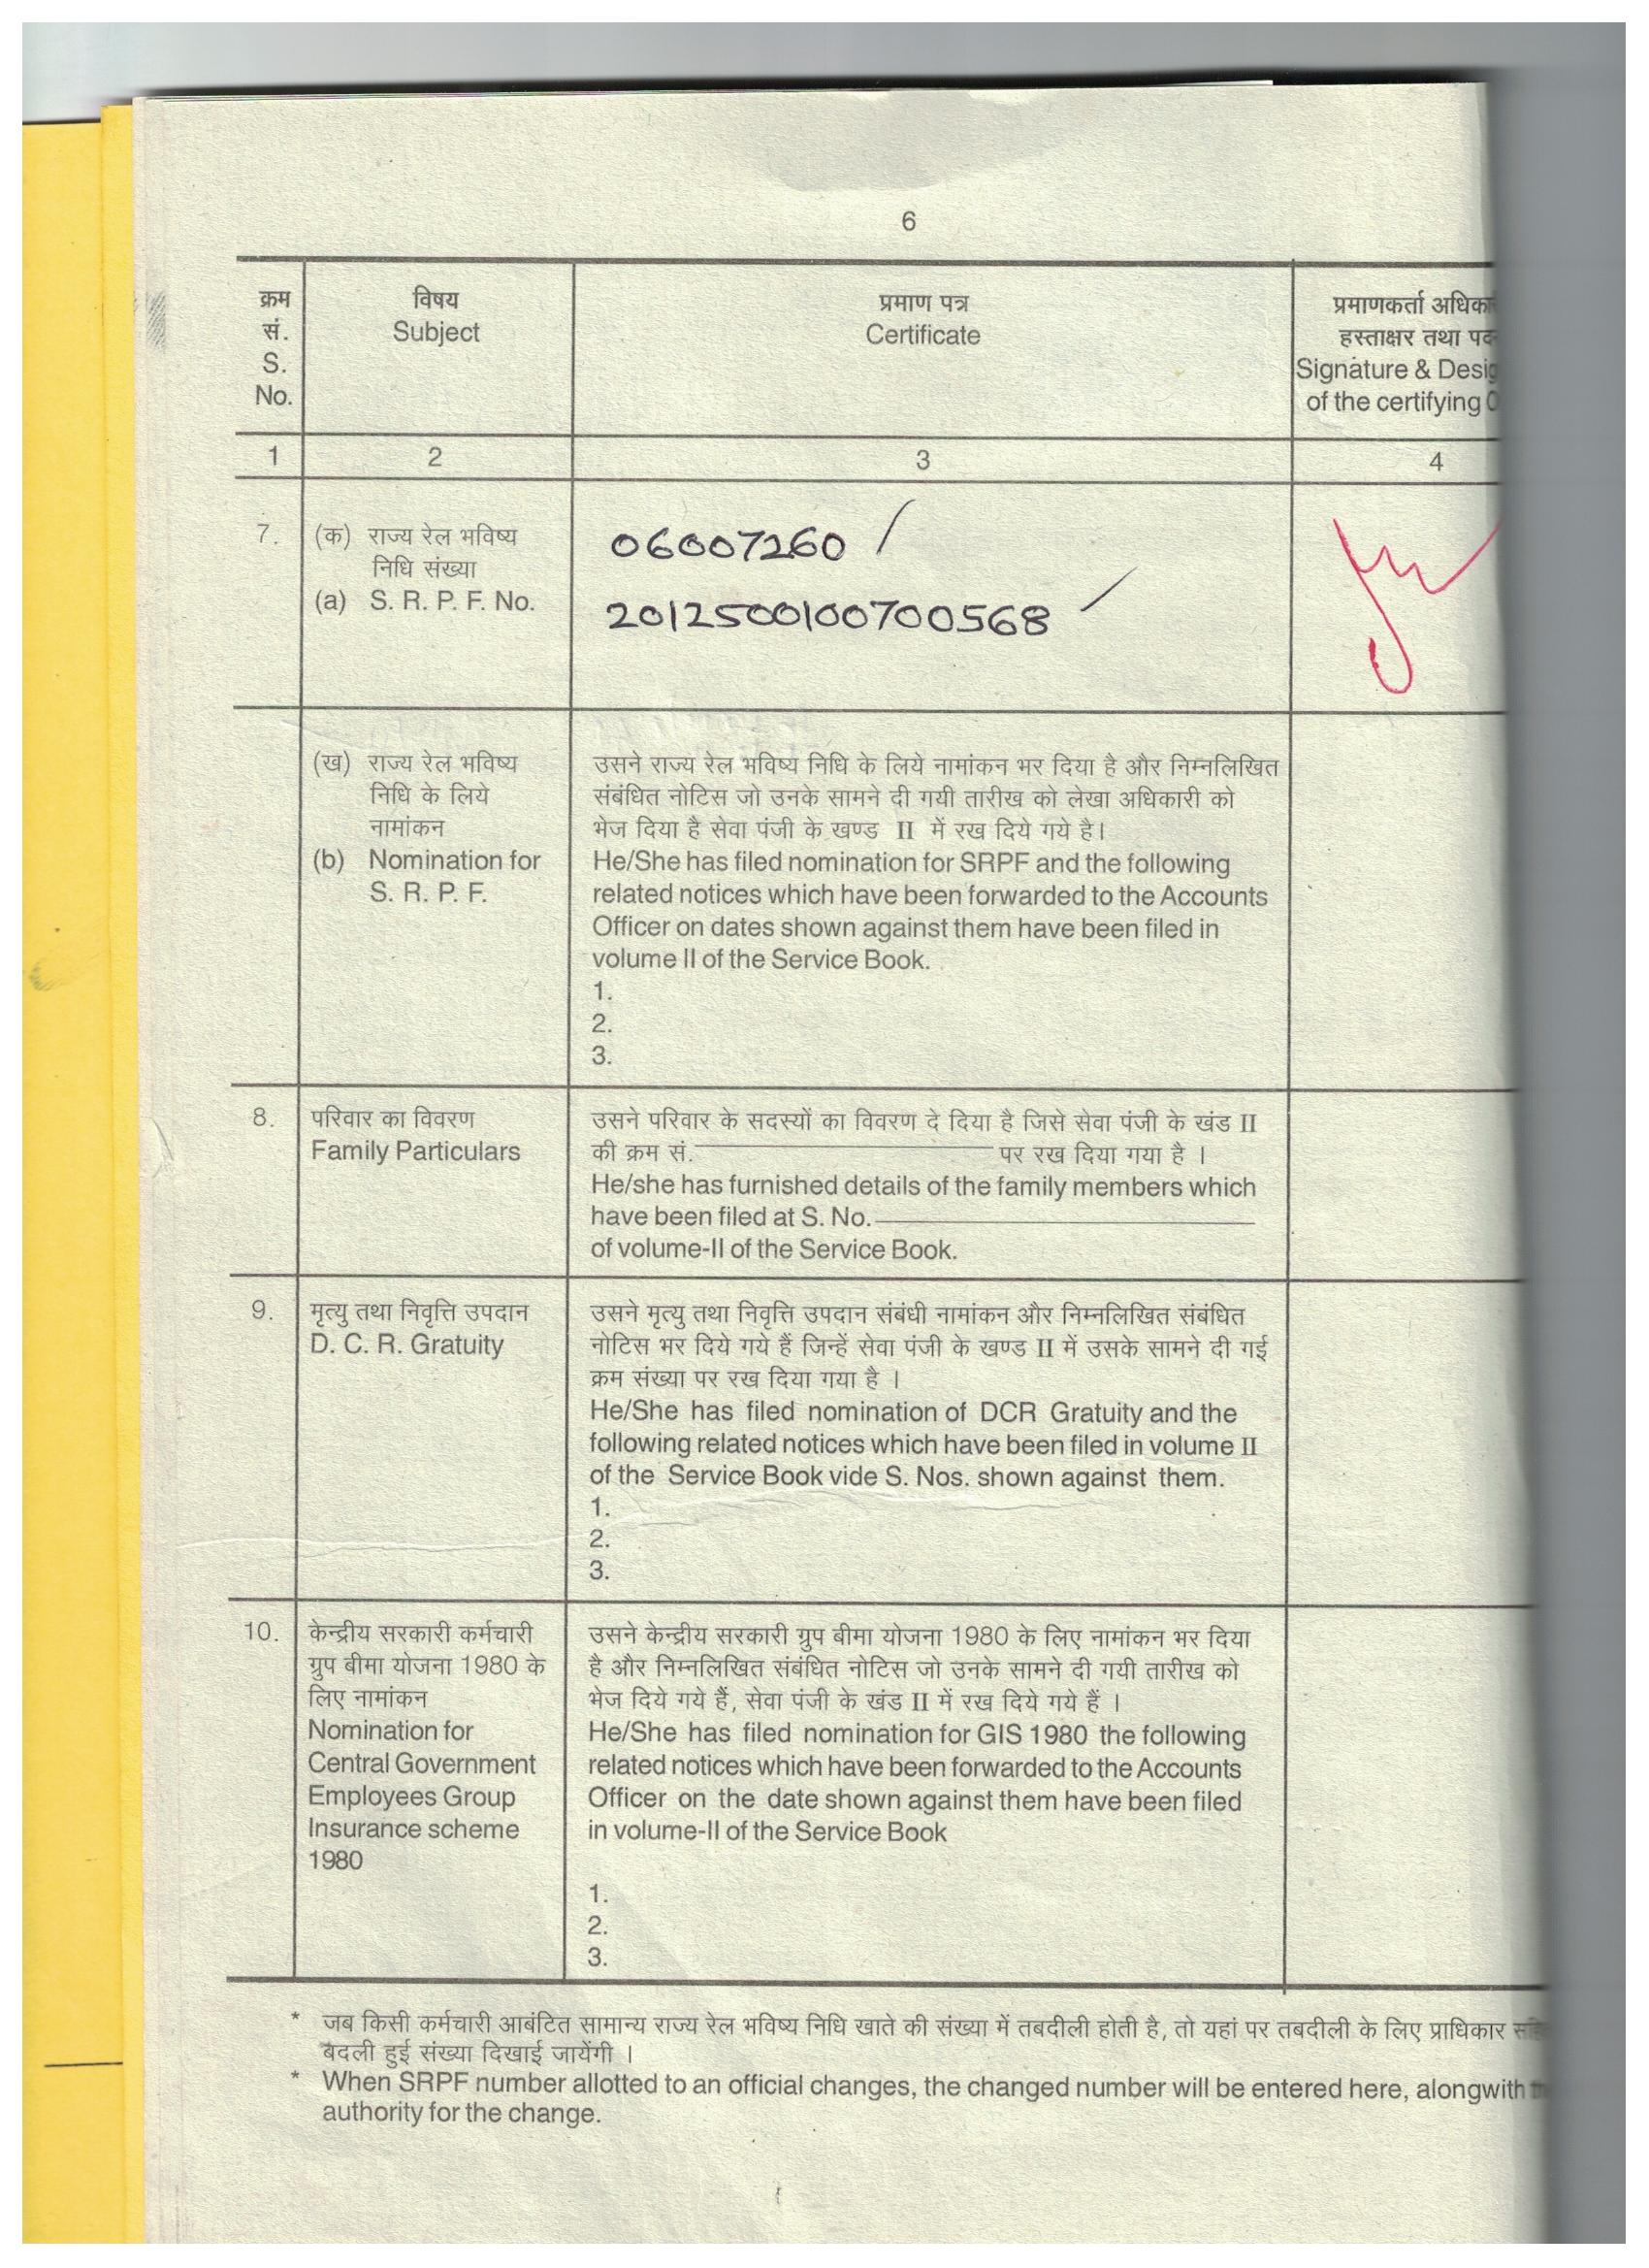 6
क्रम
सं.
S.
No.
विषय
Subject
प्रमाण पत्र
Certificate
प्रमाणकर्ता
हस्ताक्षर तथा
Signature &
of the certifying
1 2 3 4
7. (क) राज्य रेल भविष्य
निधि संख्या
(a) S. R. P. F. No.
06007260 /
2012500100700568 /
(ख) राज्य रेल भविष्य
निधि के लिये
नामांकन
(b) Nomination for
S. R. P. F.
उसने राज्य रेल भविष्य निधि के लिये नामांकन भर दिया है और निम्नलिखित
संबंधित नोटिस जो उनके सामने दी गयी तारीख को लेखा अधिकारी को
भेज दिया है सेवा पंजी के खण्ड II में रख दिये गये है।
He/She has filed nomination for SRPF and the following
related notices which have been forwarded to the Accounts
Officer on dates shown against them have been filed in
volume II of the Service Book.
1.
2.
3.
8. परिवार का विवरण
Family Particulars
उसने परिवार के सदस्यों का विवरण दे दिया है जिसे सेवा पंजी के खंड II
की क्रम सं. पर रख दिया गया है ।
He/she has furnished details of the family members which
have been filed at S. No.
of volume-II of the Service Book.
9. मृत्यु तथा निवृत्ति उपदान
D. C. R. Gratuity
उसने मृत्यु तथा निवृत्ति उपदान संबंधी नामांकन और निम्नलिखित संबंधित
नोटिस भर दिये गये हैं जिन्हें सेवा पंजी के खण्ड II में उसके सामने दी गई
क्रम संख्या पर रख दिया गया है ।
He/She has filed nomination of DCR Gratuity and the
following related notices which have been filed in volume II
of the Service Book vide S. Nos. shown against them.
1.
2.
3.
10. केन्द्रीय सरकारी कर्मचारी
ग्रुप बीमा योजना 1980 के
लिए नामांकन
Nomination for
Central Government
Employees Group
Insurance scheme
1980
उसने केन्द्रीय सरकारी ग्रुप बीमा योजना 1980 के लिए नामांकन भर दिया
है और निम्नलिखित संबंधित नोटिस जो उनके सामने दी गयी तारीख को
भेज दिये गये हैं, सेवा पंजी के खंड II में रख दिये गये हैं ।
He/She has filed nomination for GIS 1980 the following
related notices which have been forwarded to the Accounts
Officer on the date shown against them have been filed
in volume-II of the Service Book
1.
2.
3.
* जब किसी कर्मचारी आबंटित सामान्य राज्य रेल भविष्य निधि खाते की संख्या में तबदीली होती है, तो यहां पर तबदीली के लिए प्राधिकार
बदली हुई संख्या दिखाई जायेंगी ।
* When SRPF number allotted to an official changes, the changed number will be entered here, alongwith
authority for the change.